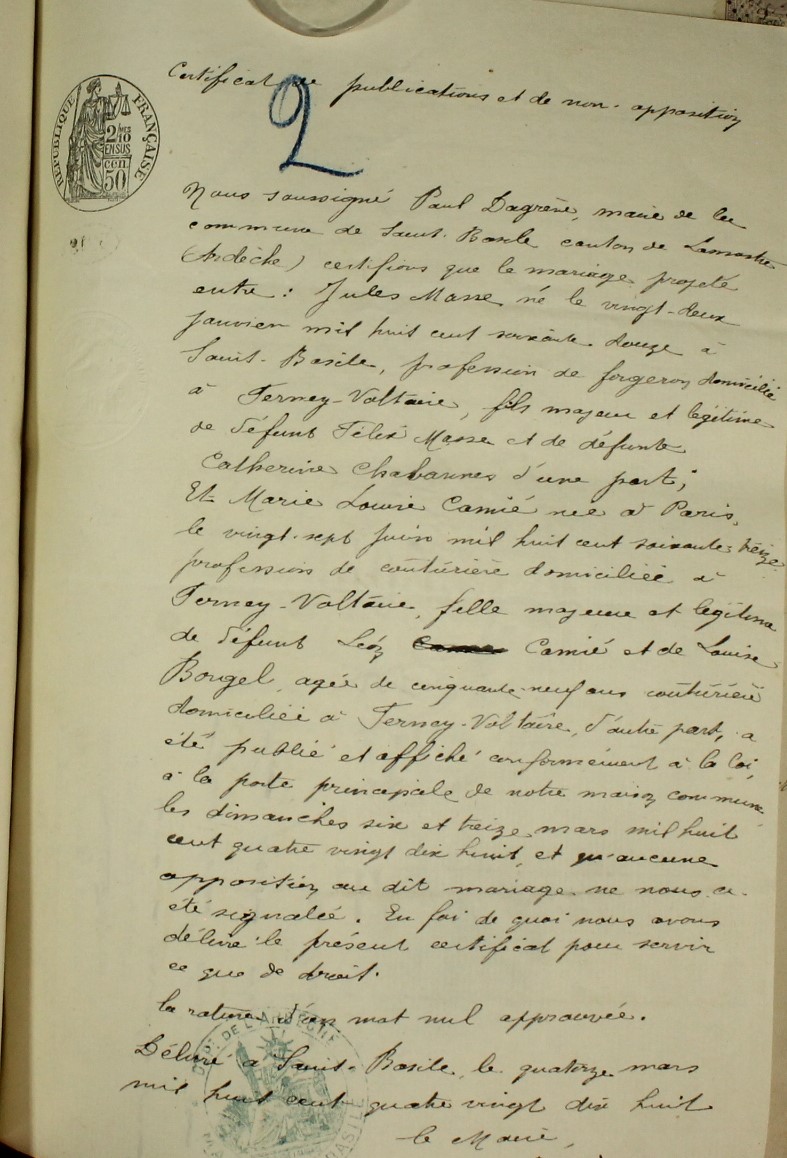 RÉPUBLIQUE FRANÇAISE
2 10
EN SUS
50 cen
Certificat de publications et de non-opposition
2
Nous soussigné Paul Dagrève, maire de la
commune de Saint-Basile canton de Lamastre
(Ardèche) certifions que le mariage projeté
entre : Jules Masse né le vingt-deux
janvier mil huit cent soixante-douze à
Saint-Basile, profession de forgeron domicilié
à Ferney-Voltaire, fils majeur et légitime
de défunt Félix Masse et de défunte
Catherine Chabannes d'une part ;
Et Marie Louise Camié née à Paris,
le vingt-sept juin mil huit cent soixante-treize
profession de couturière domiciliée à
Ferney-Voltaire, fille majeure et légitime
de défunt Léon Camié et de Louise
Bougel, agée de cinquante-neuf ans couturière
domiciliée à Ferney-Voltaire, d'autre part, a
été publié et affiché conformément à la loi,
à la porte principale de notre maison commune
les dimanches six et treize mars mil huit
cent quatre vingt dix huit, et qu'aucune
opposition au dit mariage ne nous a
été signalée. En foi de quoi nous avons
délivré le présent certificat pour servir
ce que de droit.
la rature d'un mot nul approuvée.
Délivré à Saint-Basile, le quatorze mars
mil huit cent quatre vingt dix huit
le Maire,